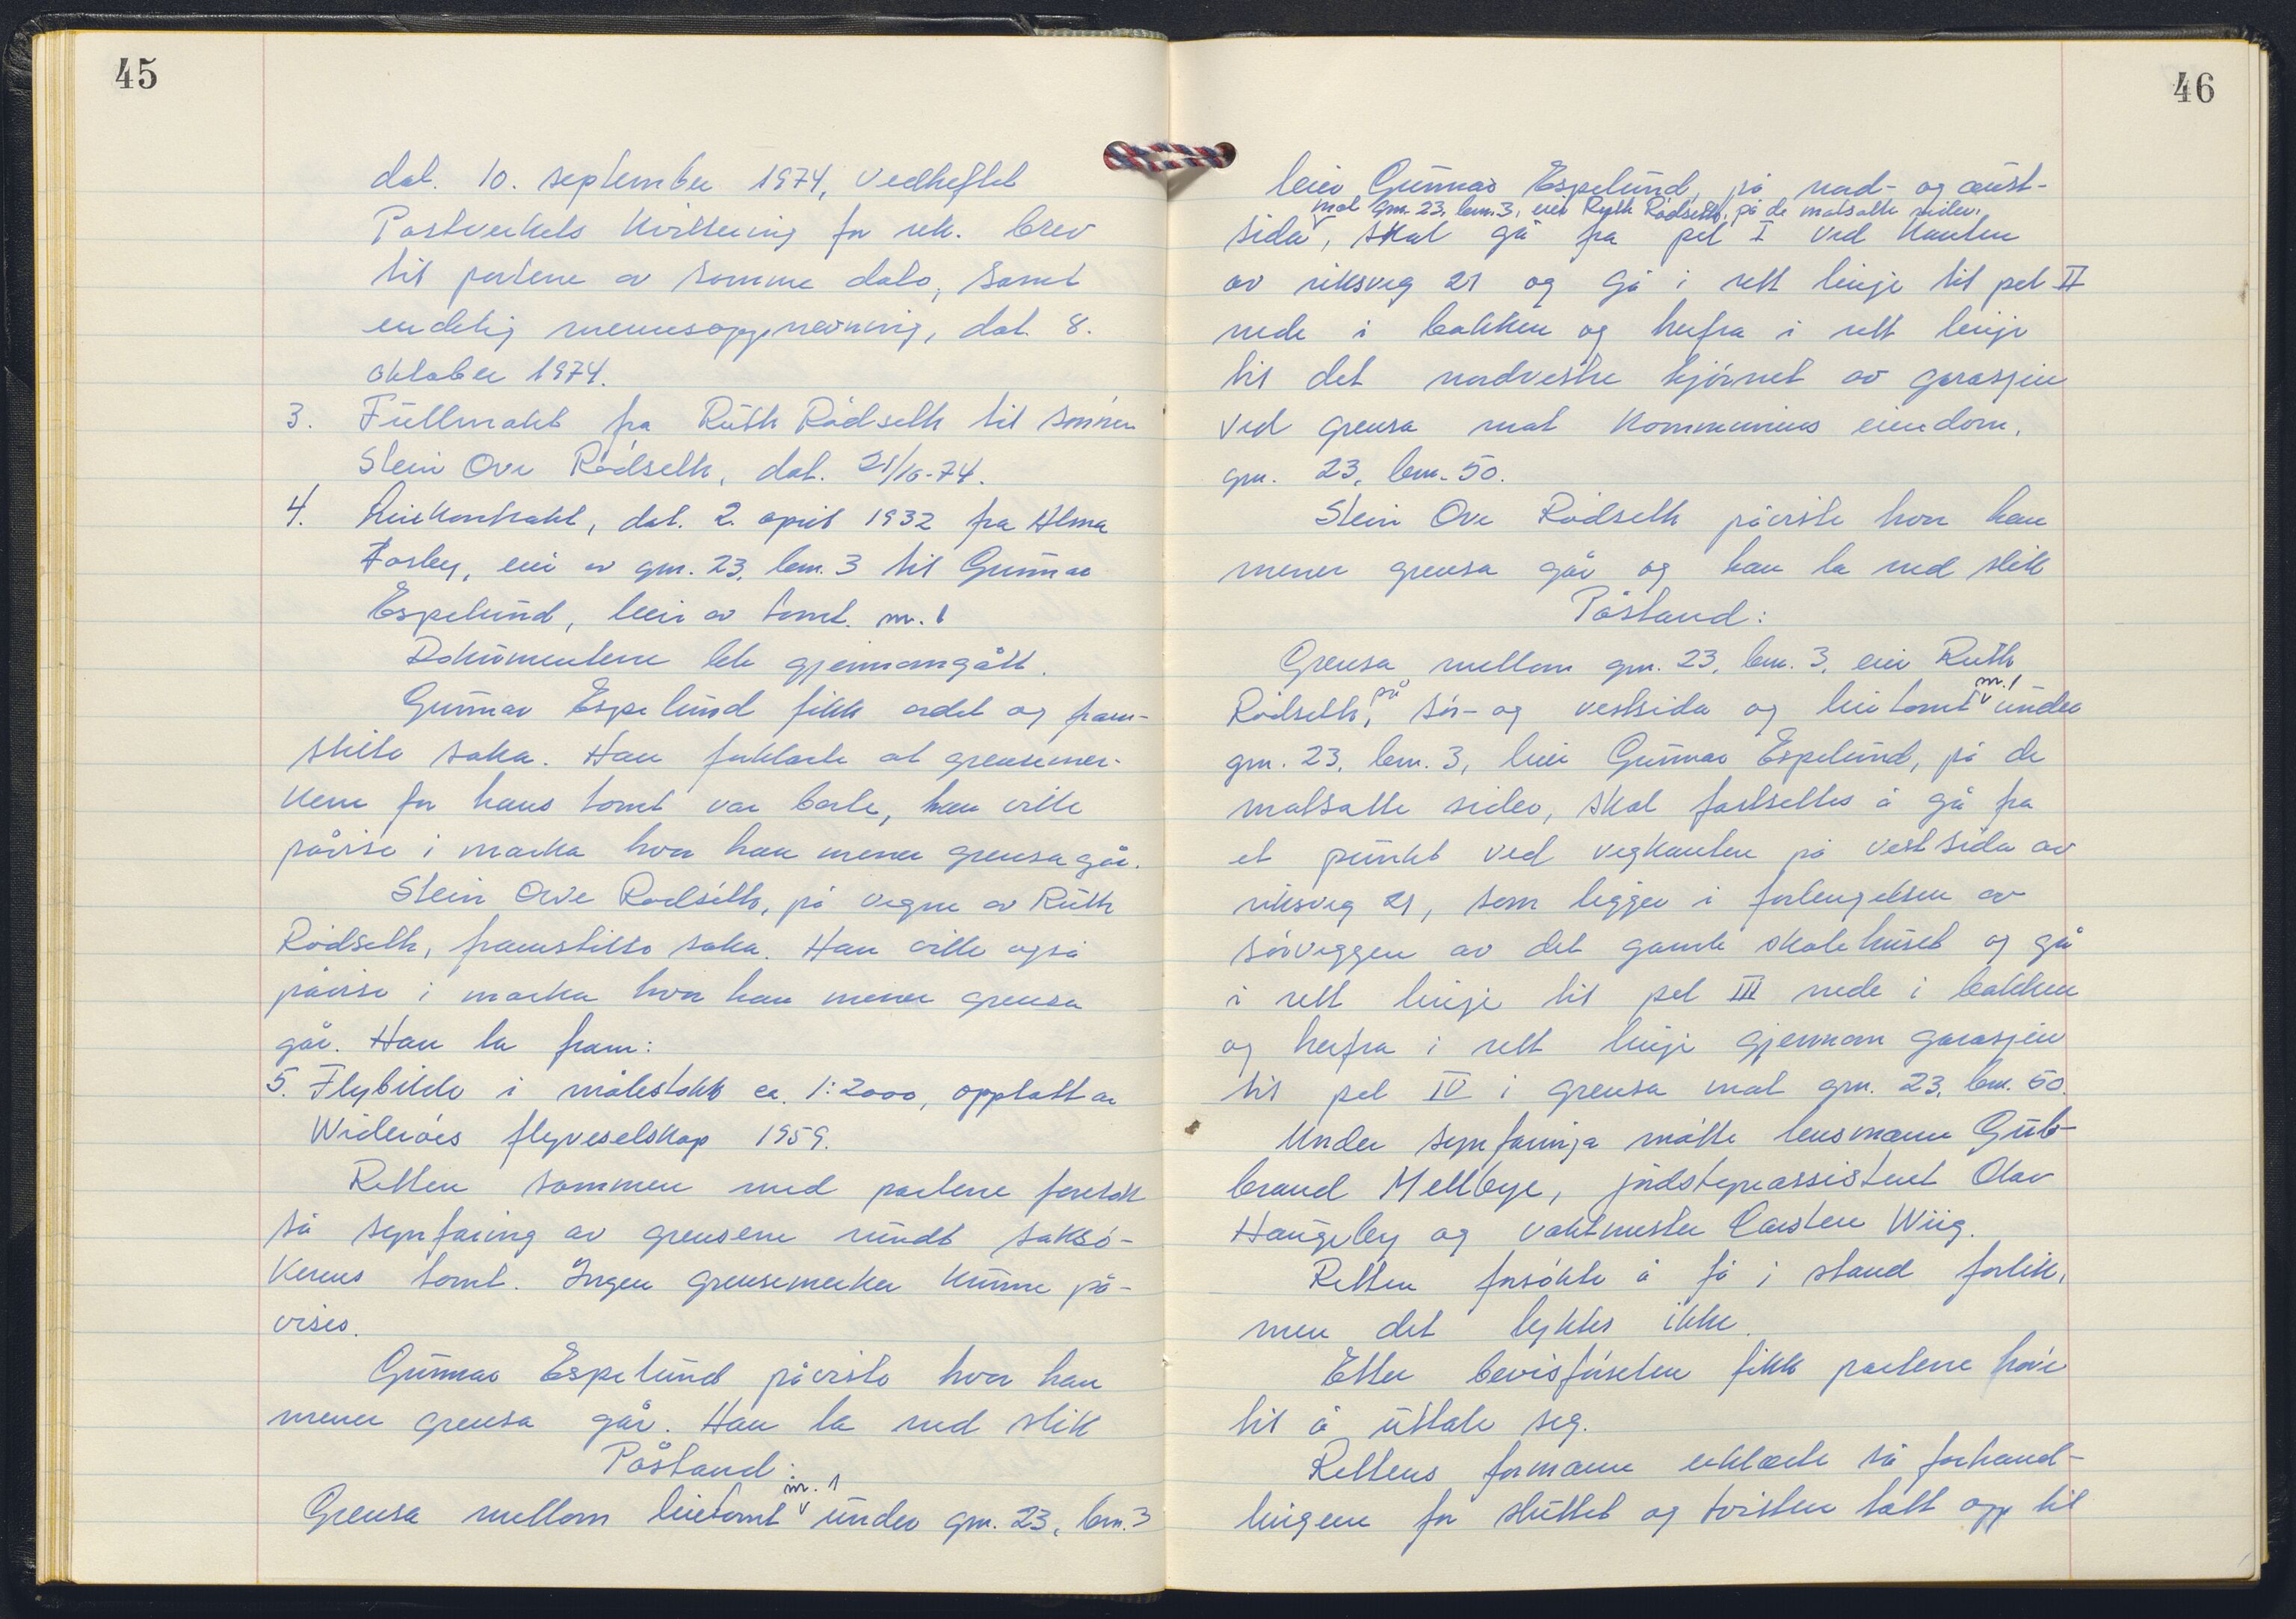 45
dat. 10. september 1974, vedheftet
Postverkets kvittering for rek. brev
til partene av samme dato, samt
endelig mennsoppnevning, dat. 8.
oktober 1974.
3. Fullmakt fra Ruth Rødseth til sønnen
Stein Ove Rødseth, dat. 21/10-74.
4. Leiekontrakt, dat. 2. april 1932 fra Alma
Fosby, eier av gnr. 23, bnr. 3 til Gunnar
Espelund, leier av tomt nr. 1
Dokumentene ble gjennomgått.
Gunnar Espelund fikk ordet og fram-
stilte saka. Han forklarte at grensemer-
kene for hans tomt var borte, han ville
påvise i marka hvor han mener grensa går.
Stein Ove Rødseth, på vegne av Ruth
Rødseth, framstilte saka. Han ville også
påvise i marka hvor han mener grensa
går. Han la fram:
5. Flybilde i målestokk ca. 1:2000, opptatt av
Widerøes flyveselskap 1959.
Retten sammen med partene foretok
så synfaring av grensene rundt saksø-
kerens tomt. Ingen grensemerker kunne på-
vises.
Gunnar Espelund påviste hvor han
mener grensa går. Han la ned slik
Påstand:
nr. 1
Grensa mellom leietomt under gnr. 23, bnr. 3
46
leier Gunnar Espelund, på nord- og aust-
mot gnr. 23, bnr. 3, eier Ruth Rødseth, på de motsatte sider,
sida, skal gå fra pel I ved kanten
av riksveg 21 og gå i rett linje til pel II
nede i bakken og herfra i rett linje
til det nordvestre hjørnet av garasjen
ved grensa mot kommunens eiendom,
gnr. 23, bnr. 50.
Stein Ove Rødseth påviste hvor han
mener grensa går og han la ned slik
Påstand:
Grensa mellom gnr. 23, bnr. 3, eier Ruth
på nr. 1
Rødseth, sør- og vestsida og leietomt under
gnr. 23, bnr. 3, leier Gunnar Espelund, på de
motsatte sider, skal fastsettes å gå fra
et punkt ved vegkanten på vestsida av
riksveg 21, som ligger i forlengelsen av
sørveggen av det gamle skolehuset og gå
i rett linje til pel III nede i bakken
og herfra i rett linje gjennom garasjen
til pel IV i grensa mot gnr. 23, bnr. 50.
Under synfaringa møtte lensmann Gul-
brand Mellbye, jordstyreassistent Olav
Haugeby og vaktmester Carsten Wiig.
Retten forsøkte å få i stand forlik,
men det lyktes ikke.
Etter bevisførselen fikk partene høve
til å uttale seg.
Rettens formann erklærte så forhand-
lingene for sluttet og tvisten tatt opp til